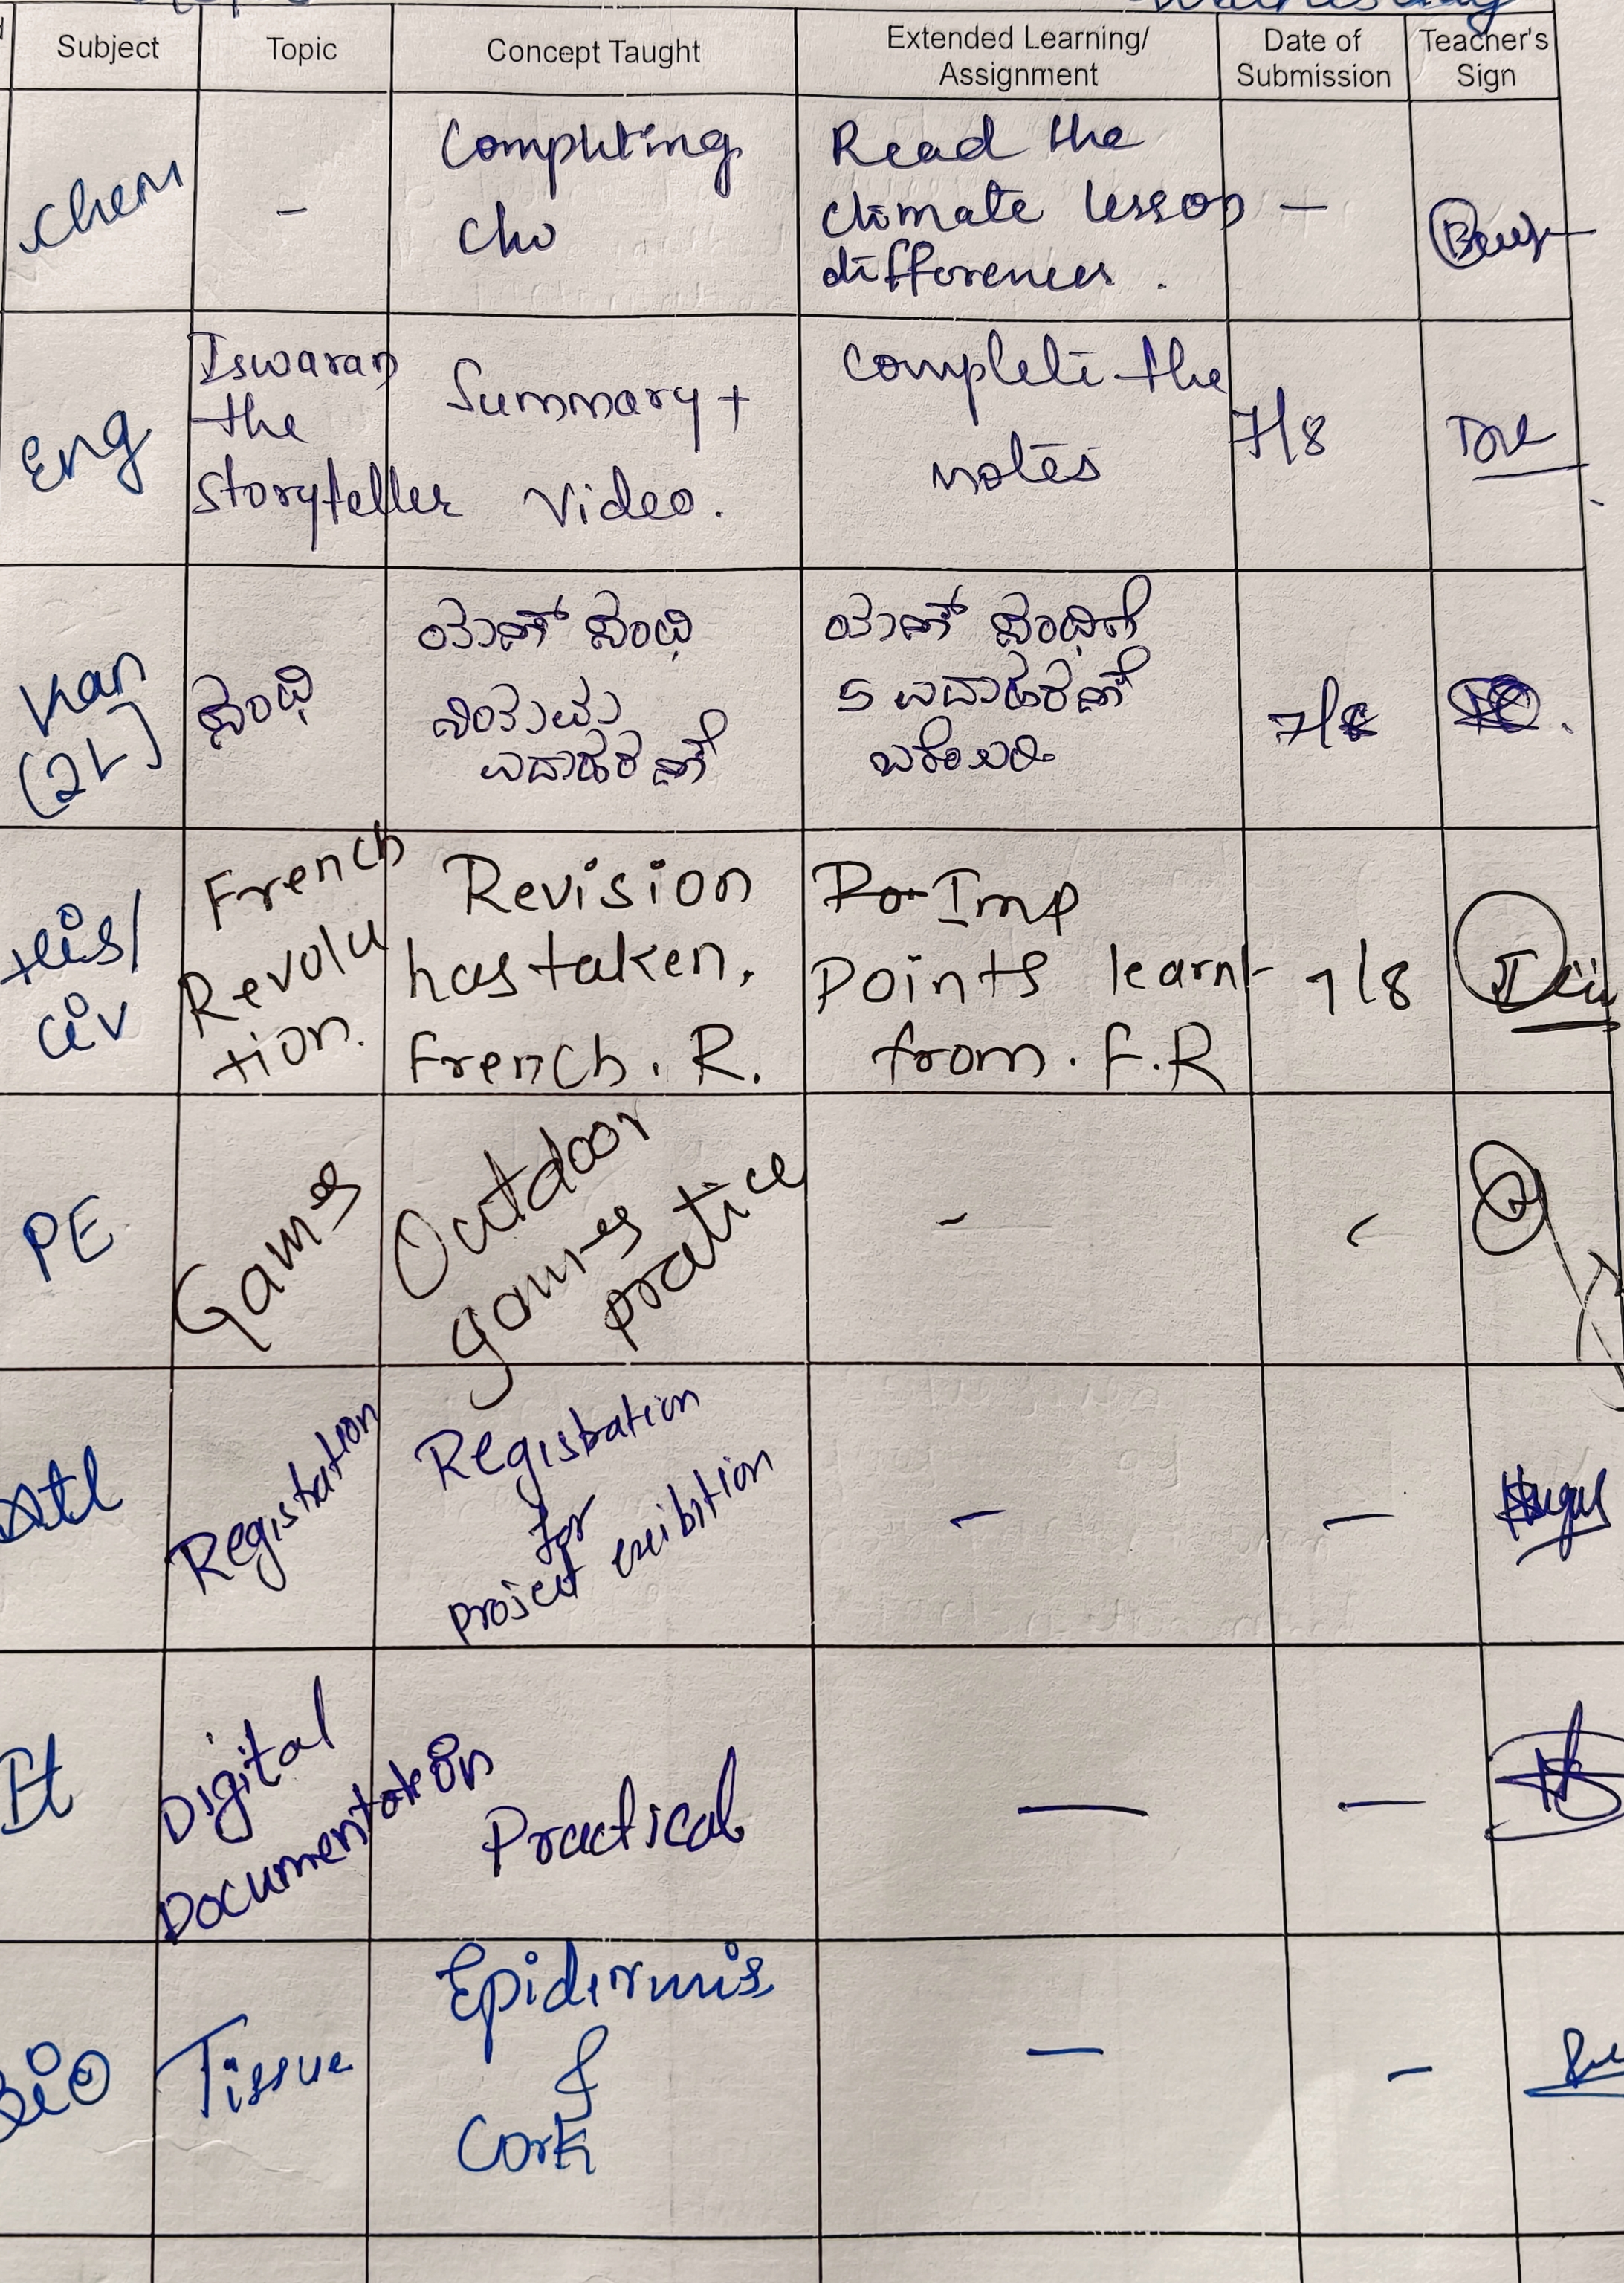 Subject
Topic
Concept Taught
Extended Learning/
Assignment
Date of
Submission
Teacher's
Sign
Chem
-
Completing
Read the
climate lesson
differences.
-
Eng
Iswaran
the
Storyteller
Summary +
Video.
Complete the
notes
7/8
Kan
(2L)
ಸಂಧಿ
ಯಣ್ ಸಂಧಿ
ನಿಯಮ
ಉದಾಹರಣೆ
ಯಣ್ ಸಂಧಿಗೆ
5 ಉದಾಹರಣೆ
ಬರೆಯಿರಿ
7/8
His/
Civ
French
Revolu
tion.
Revision
has taken.
French. R.
Imp
Points learnt
from. F.R
7/8
PE
Games
Outdoor
games
pratice
-
Atl
Registration
Registration
for
project exibition
-
-
It
Digital
Documentation
Practical
-
-
Bio
Tissue
Epidermis
&
Cork
-
-